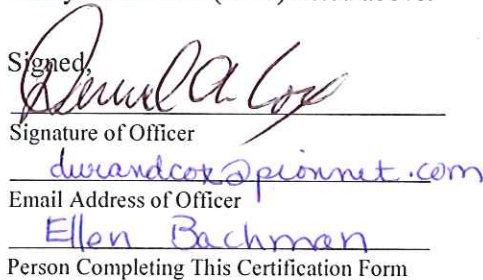 Signed,
Cox
Signature of Officer
durandcox@pionnet.com
Email Address of Officer
Ellen Bachman
Person Completing This Certification Form